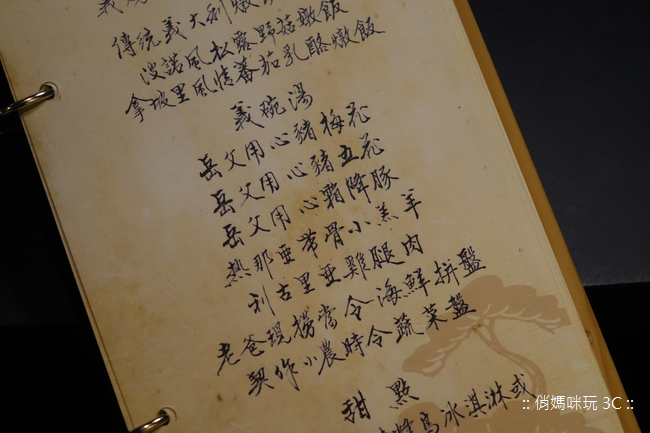 傳統義大利燉
波諾風松露野菇燉飯
拿坡里風情番茄乳酪燉飯
義碗湯
岳父用心豬梅花
岳父用心豬五花
岳父用心霜降豚
熱那亞帶骨小羔羊
利古里亞雞腿肉
老爸現撈當令海鮮拼盤
契作小農時令蔬菜盤
甜點
冰淇淋或
:: 俏媽咪玩 3C ::